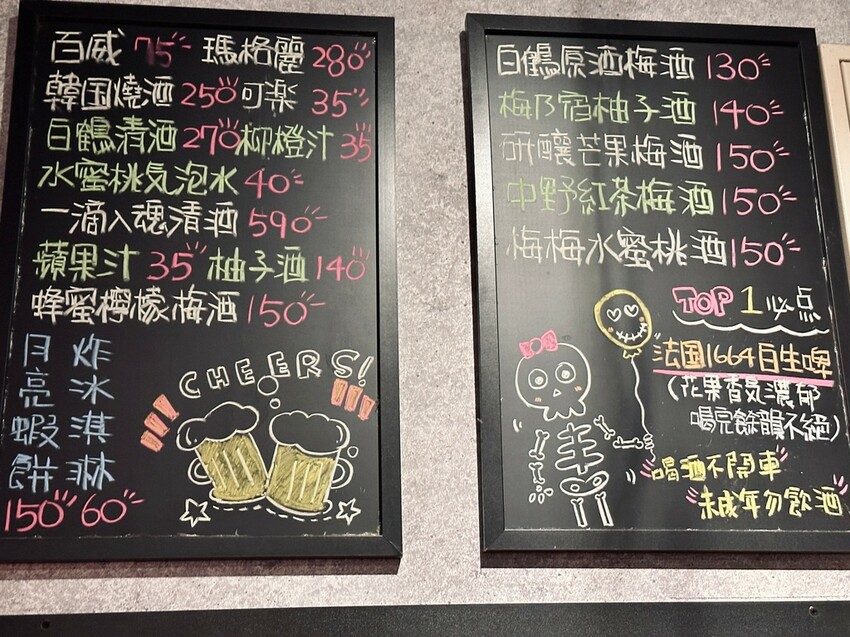 百威 75 瑪格麗 280
韓国燒酒 250 可楽 35
白鶴清酒 270 柳橙汁 35
水蜜桃気泡水 40
一滴入魂清酒 590
蘋果汁 35 柚子酒 140
蜂蜜檸檬梅酒 150
月亮蝦餅 150
炸冰淇淋 60
CHEERS!
白鶴原酒梅酒 130
梅乃宿柚子酒 140
研釀芒果梅酒 150
中野紅茶梅酒 150
梅梅水蜜桃酒 150
TOP 1 必点
法国1664白生啤
(花果香気濃郁
喝完餘韻不絕)
喝酒不開車
未成年勿飲酒